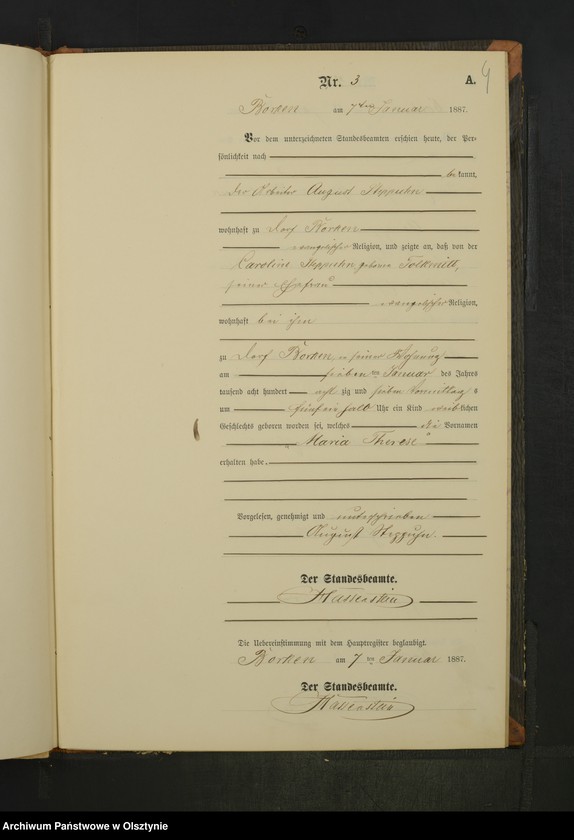 Nr. 3 A. 4
Borken am 7ten Januar 1887.
Vor dem unterzeichneten Standesbeamten erschien heute, der Per-
sönlichkeit nach
bekannt,
der Arbeiter August Steppuhn
wohnhaft zu Dorf Borken
evangelischer Religion, und zeigte an, daß von der
Caroline Steppuhn geborne Folkmitt,
seiner Ehefrau
evangelischer Religion,
wohnhaft bei ihm
zu Dorf Borken, in seiner Wohnung
am sieben ten Januar des Jahres
tausend acht hundert acht zig und sieben Vormittags
um fünf ein halb Uhr ein Kind weiblichen
Geschlechts geboren worden sei, welches die Vornamen
"Maria Therese"
erhalten habe.
Vorgelesen, genehmigt und unterschrieben
August Steppuhn.
Der Standesbeamte.
Hassenstein
Die Uebereinstimmung mit dem Hauptregister beglaubigt.
Borken am 7 ten Januar 1887.
Der Standesbeamte.
Hassenstein
Archiwum Państwowe w Olsztynie